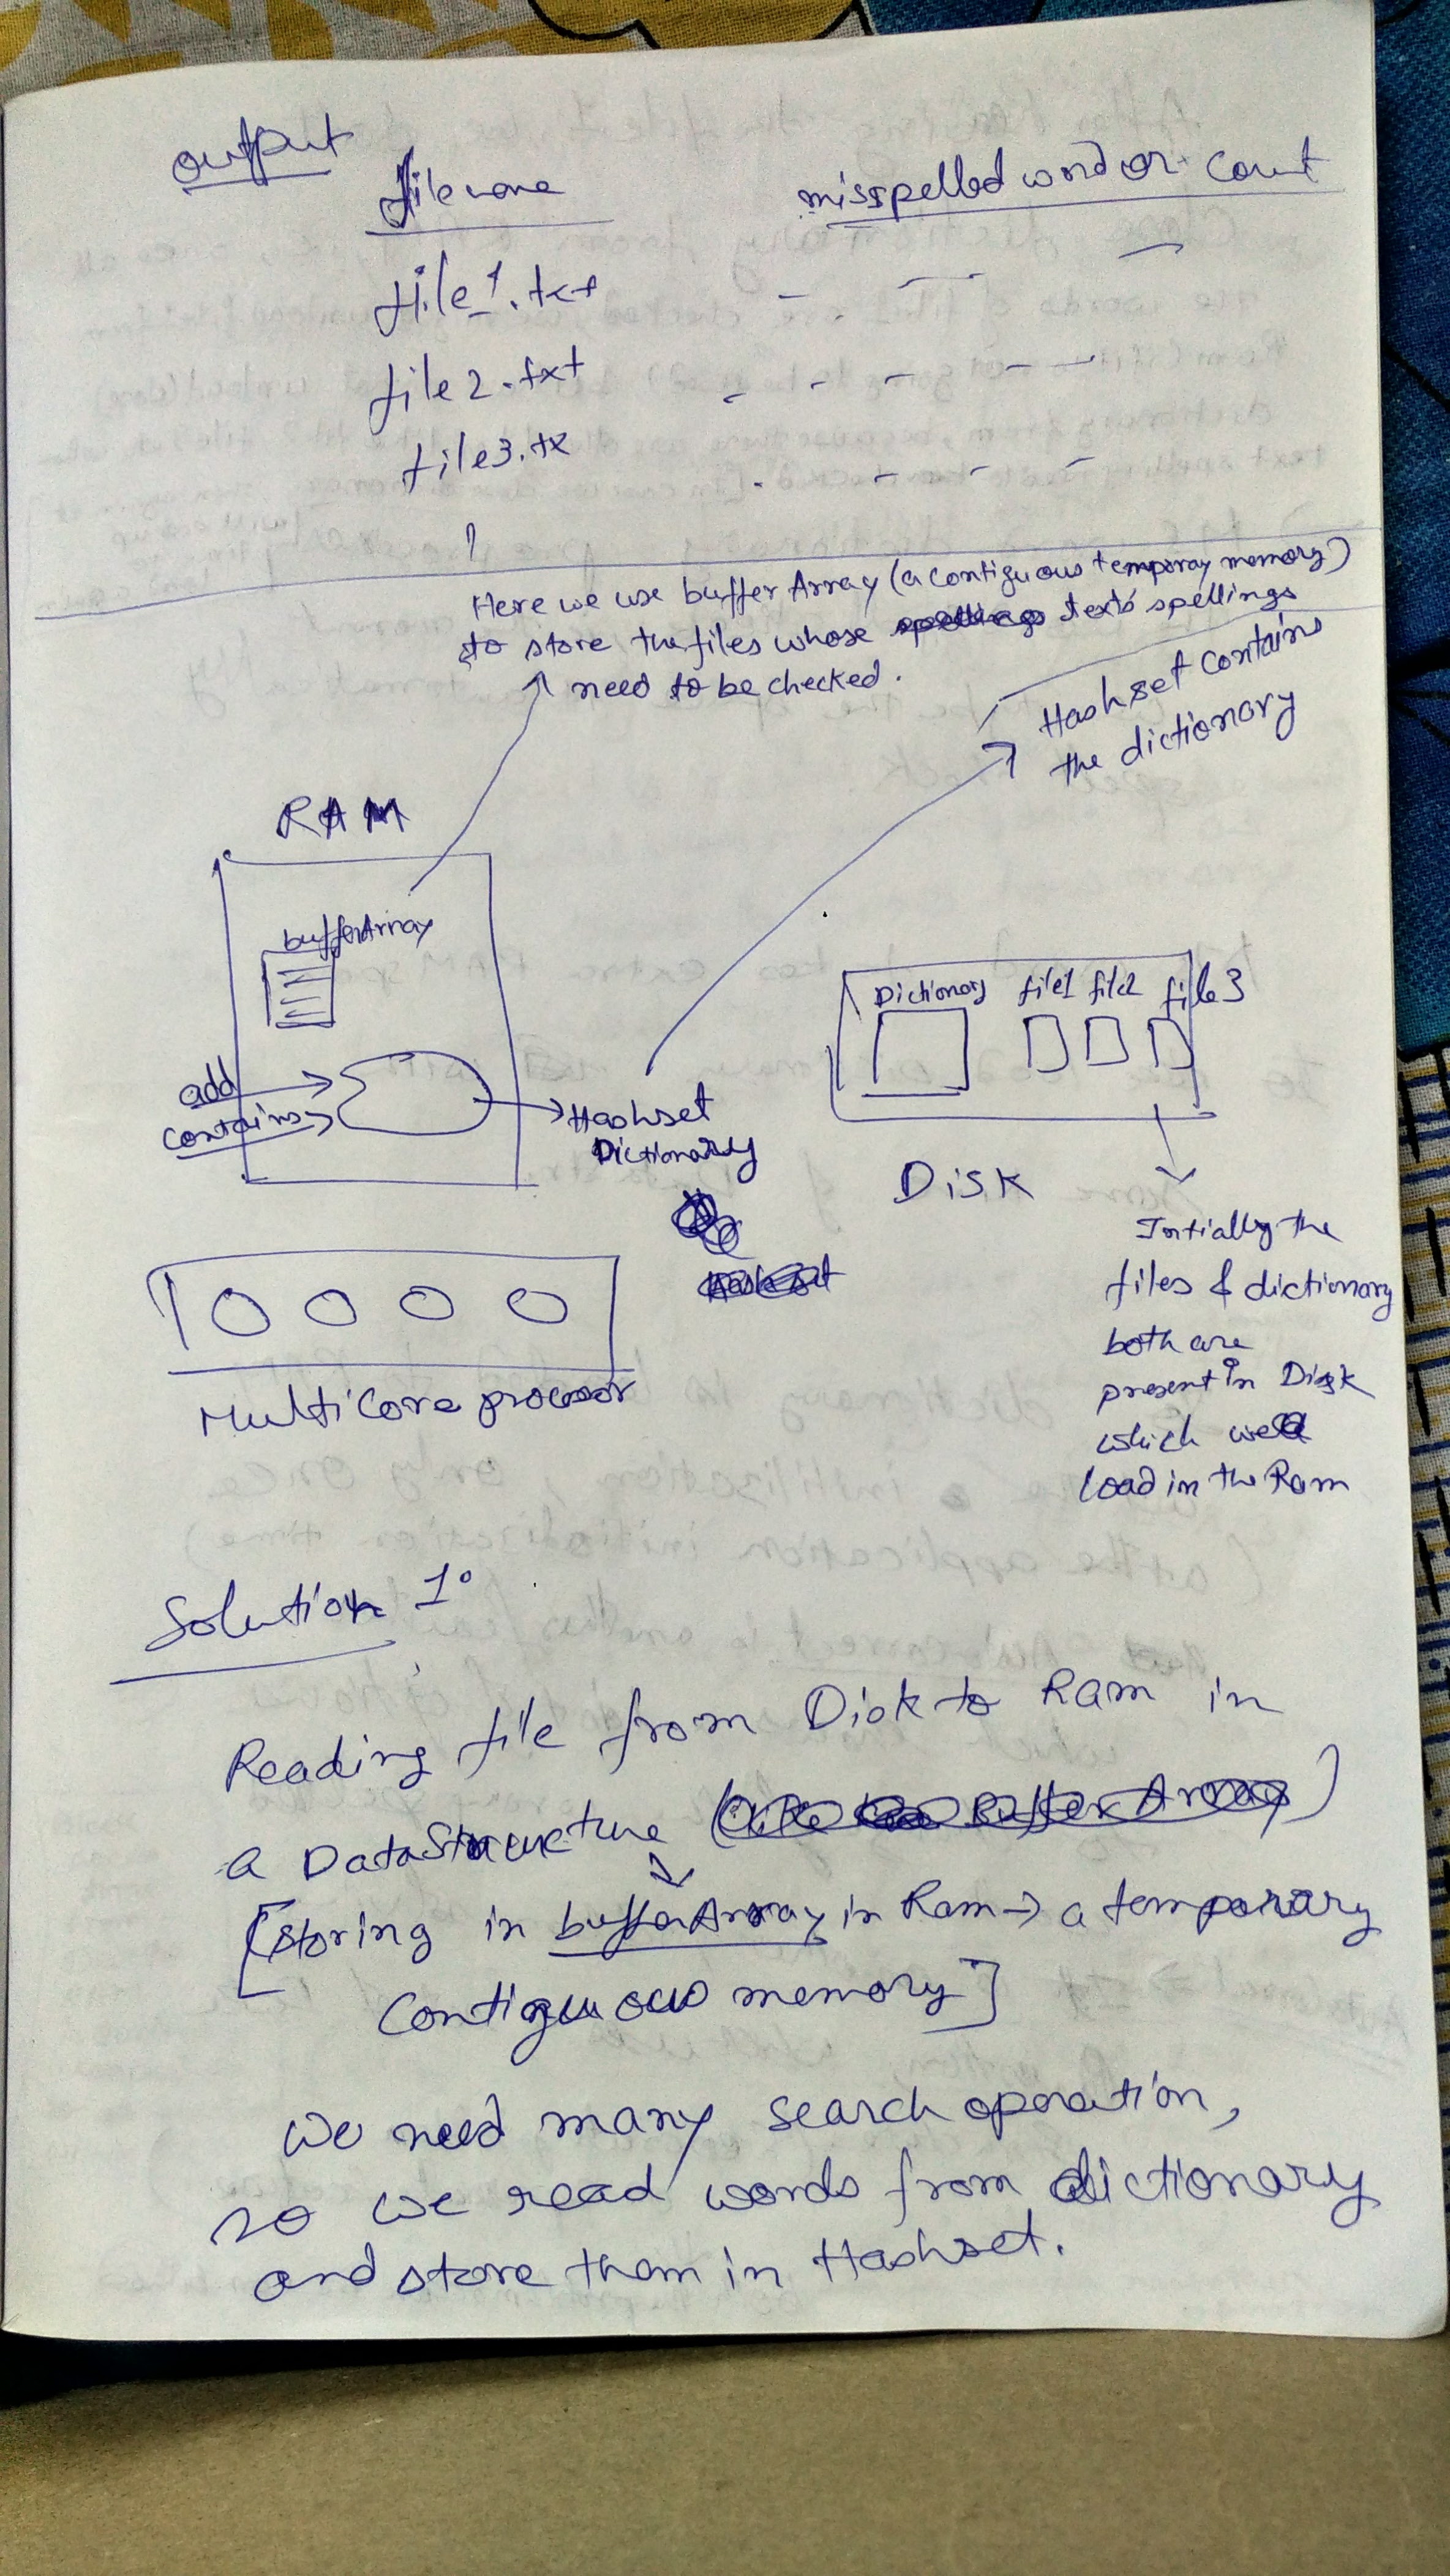 output
filename misspelled word or count
file1.txt - - -
file2.txt - - - - -
file3.tx - - - -
Here we use buffer Array (a contiguous temporay memory)
to store the files whose text's spellings
need to be checked.
Hashset contains
the dictionary
RAM
bufferArray
Dictionary file1 file2 file3
add
contains
Hashset
Dictionary
DISK
Intially the
files & dictionary
both are
present in Disk
which we
load in the Ram
Multicore processor
Solution 1:
Reading file from Disk to Ram in
a DataStructure ( )
[storing in bufferArray in Ram → a temporary
Contiguous memory]
We need many search operation,
so we read words from dictionary
and store them in Hashset.